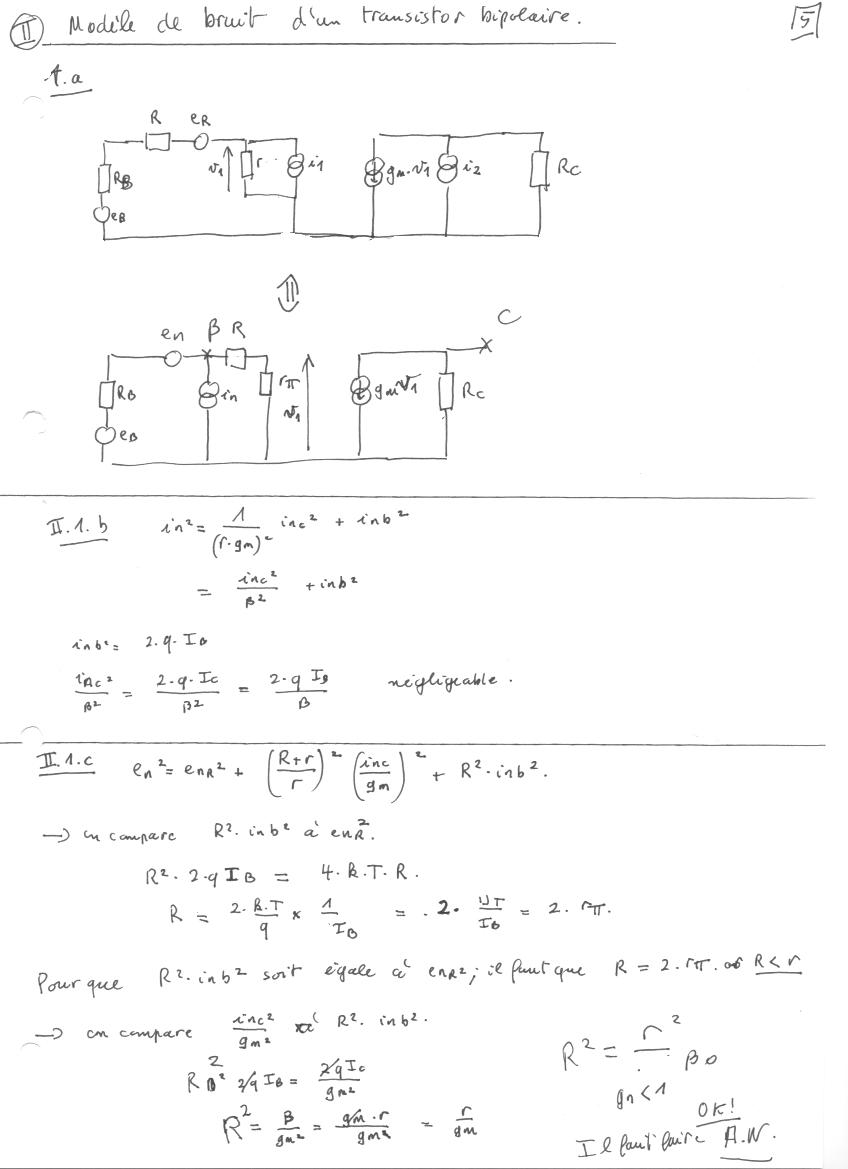 II Modèle de bruit d'un transistor bipolaire. 5
1.a
R eR
RB v1 r i1 gm.v1 i2 RC
eB
C
en β R
RB in rπ v1 gmv1 RC
eB
II.1.b in² = 1/(r.gm)² inc² + inb²
= inc²/β² + inb²
inb² = 2.q.IB
inc²/β² = 2.q.Ic/β² = 2.q IB/β négligeable.
II.1.c en² = enR² + ((R+r)/r)² (inc/gm)² + R².inb².
→ on compare R².inb² à enR².
R².2.q IB = 4.k.T.R.
R = 2.k.T/q × 1/IB = .2. UT/IB = 2.rπ.
Pour que R².inb² soit égale à enR²; il faut que R = 2.rπ. R<r
→ on compare inc²/gm² à R².inb².
R² 2q IB = 2qIc/gm²
R² = β/gm² = gm.r/gm² = r/gm
R² = r²/ β0
<1
OK!
Il faut faire A.N.